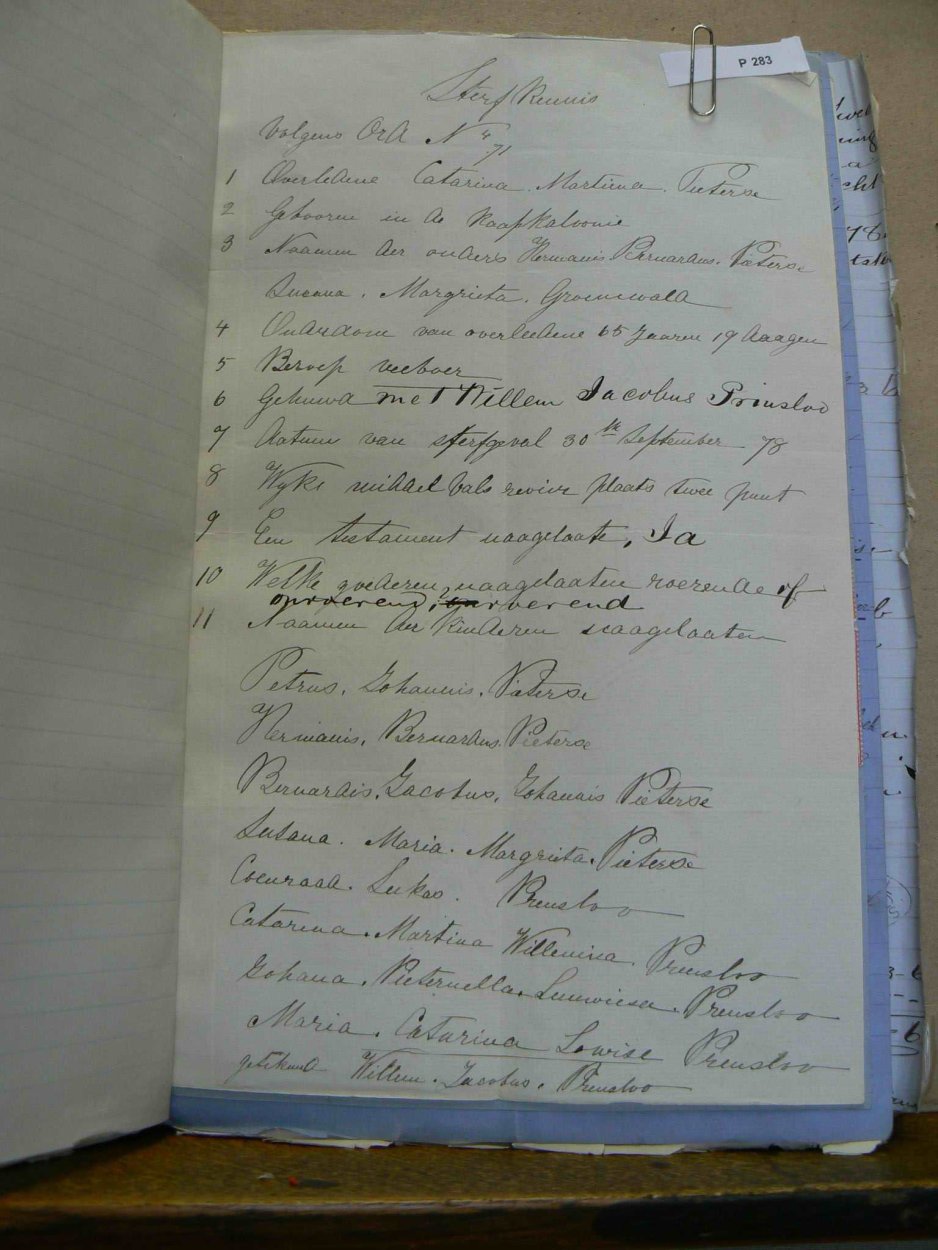 P 283
Sterf Kennis
Volgens Ord N 4/71
1 Overledene Catarina. Martiena. Pieterse
2 Gebooren in de Kaapkaloonie
3 Naamen der ouders Hermanis Bernardus. Pieterse
Susana. Margrieta. Groenewald
4 Ouderdom van overledene 65 Jaaren 19 daagen
5 Beroep veeboer
6 Gehuwd met Willem Jacobus Prinsloo
7 Datum van sterfgeval 30ste September 78
8 Wyk middel vals revier plaats twee punt
9 Een testament naagelaate, Ja
10 Welke goederen naagelaaten roerende of
onroerend, roerend
11 Naamen der kinderen naagelaaten
Petrus. Johannis. Pieterse
Hermanis. Bernardus. Pieterse
Bernardis. Jacobus. Johannis Pieterse
Susana. Maria. Margrieta. Pieterse
Coenraad. Lukas. Prensloo
Catarina. Martina Willemina. Prensloo
Johana. Pieternella. Prensloo
Maria. Catarina Lowise Prensloo
getekend Willem. Jacobus. Prensloo